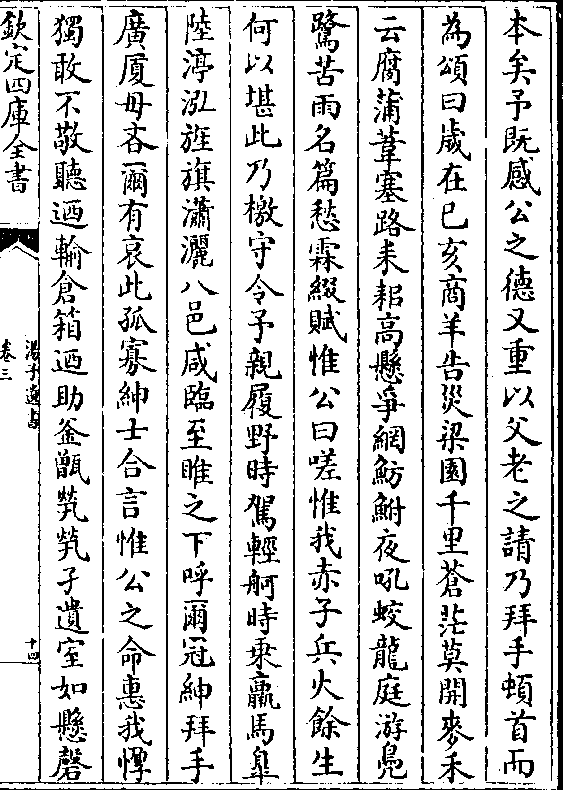 本矣予既感公之德又重以父老之請乃拜手頓首而
為頌曰歲在己亥商羊告災梁園千里蒼茫莫開麥禾
云腐蒲葦塞路耒耜高懸爭網魴鮒夜吼蛟龍庭游鳧
鷖苦雨名篇愁霖綴賦惟公曰嗟惟我赤子兵火餘生
何以堪此乃檄守令予親履野時駕輕舸時乘羸馬臯
陸渟泓旌旗瀟灑八邑咸臨至睢之下呼爾冠紳拜手
廣厦毋吝爾有哀此孤寡紳士合言惟公之命惠我惸
獨敢不敬聽迺輸倉箱迺助釜甑煢煢孑遺室如懸磬
欽定四庫全書
湯子遺書
卷三
十四